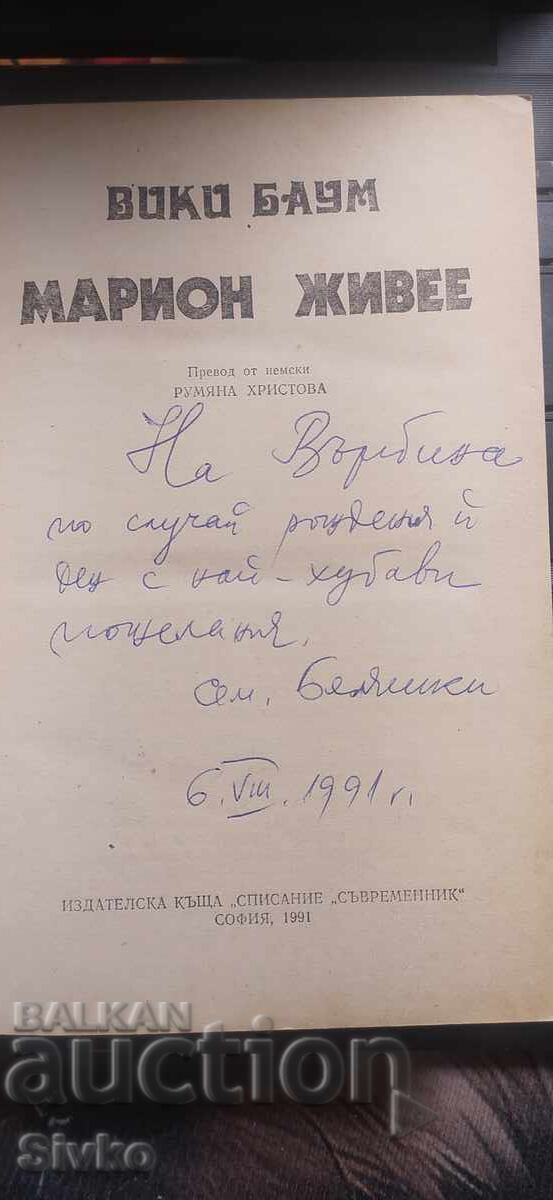 ВИКИ БАУМ
МАРИОН ЖИВЕЕ
Превод от немски
РУМЯНА ХРИСТОВА
На Върбина
по случай рождения ѝ
ден с най-хубави
пожелания.
сем.
6.VIII.1991 г.
ИЗДАТЕЛСКА КЪЩА „СПИСАНИЕ „СЪВРЕМЕННИК“
СОФИЯ, 1991
BALKAN
auction
Sivko